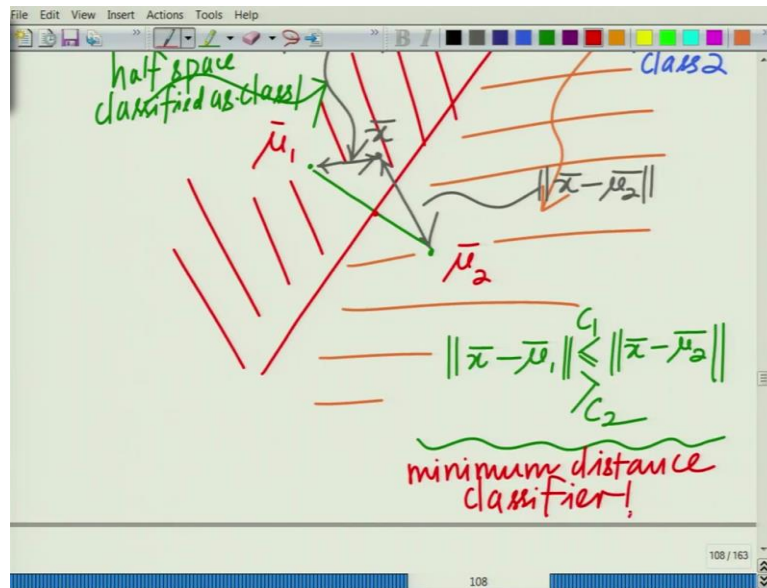 File Edit View Insert Actions Tools Help
B I
half space
classified as class 1
class 2
x̄
μ̄₁
||x̄ - μ̄₂||
μ̄₂
C₁
||x̄ - μ̄₁|| ≤ ||x̄ - μ̄₂||
>
C₂
minimum distance
classifier!
108 / 163
108